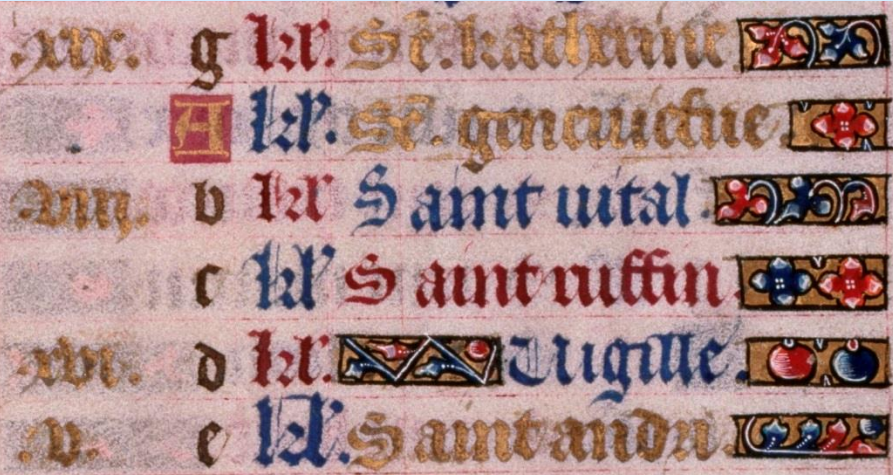 .xix. g kl'. Sē. katherine
A kl'. Sē. geneuiefue.
.viii. b kl' Saint uital.
c kl' Saint ruffin.
.xvi. d kl'. Uigille.
.v. e kl'. Saint andri.